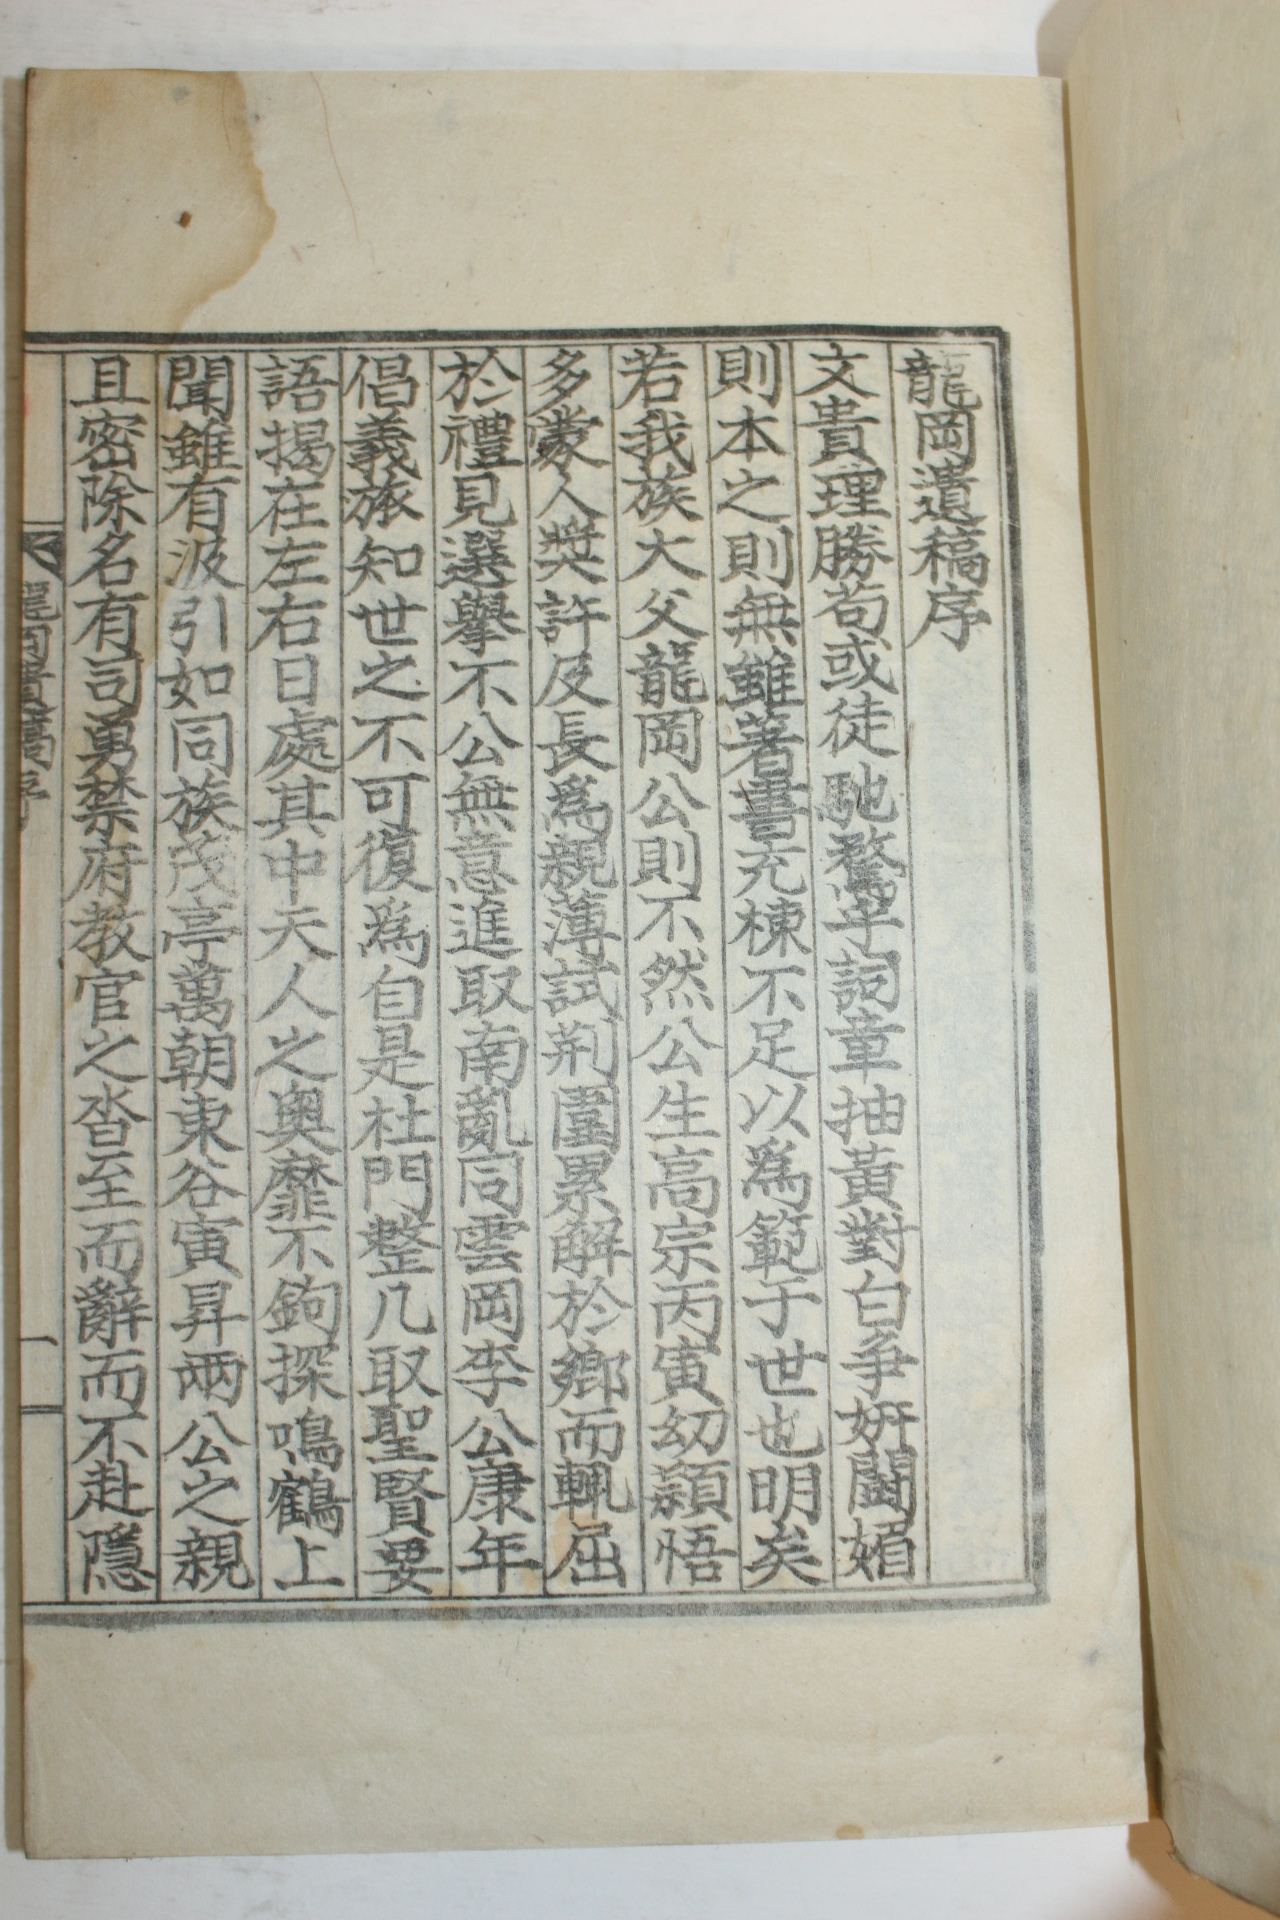 龍岡遺稿序
文貴理勝苟或徒馳騖乎詞章抽黃對白爭姸鬪媚
則本之則無雖著書充棟不足以爲範于世也明矣
若我族大父龍岡公則不然公生高宗丙寅幼穎悟
多蒙人奬許及長爲親薄試荆圍累解於鄕而輒屈
於禮見選擧不公無意進取南亂同雲岡李公康年
倡義旅知世之不可復爲自是杜門整几取聖賢要
語揭在左右日處其中天人之奧靡不鉤探鳴鶴上
聞雖有汲引如同族茂亭萬朝東谷寅昇兩公之親
且密除名有司勇禁府敎官之沓至而辭而不赴隱
龍岡遺稿序
一